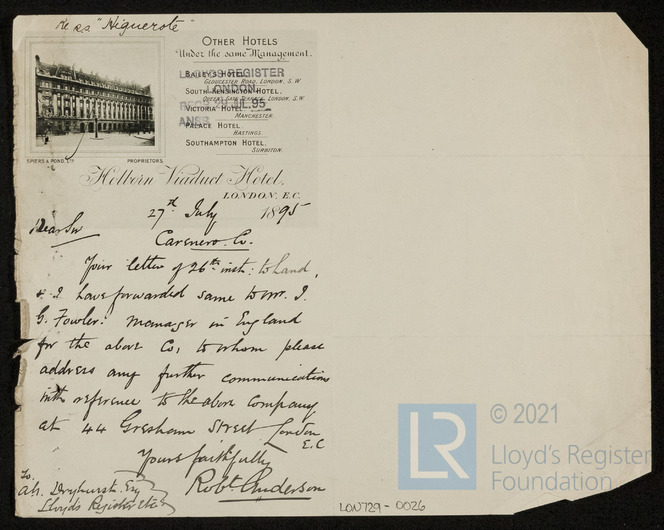 Re ss "Higuerote"
OTHER HOTELS
Under the same Management.
BAILEY'S HOTEL.
GLOUCESTER ROAD, LONDON, S.W.
SOUTH KENSINGTON HOTEL.
QUEEN'S GATE TERRACE, LONDON, S.W.
VICTORIA HOTEL.
MANCHESTER.
PALACE HOTEL.
HASTINGS.
SOUTHAMPTON HOTEL.
SURBITON.
LLOYD'S REGISTER
LONDON
REC'D 29 JUL.95
ANSD
SPIERS & POND, LTD PROPRIETORS.
Holborn Viaduct Hotel,
LONDON, E.C.
27th July 1895
Dear Sir
Carenero. Co.
Your letter of 26th inst: to hand,
& I have forwarded same to Mr. J.
G. Fowler: Manager in England
for the above Co, to whom please
address any further communications
with reference to the above company
at 44 Gresham Street London
E.C
Yours faithfully
Robt Anderson
To
Dryhurst. Esq
Lloyds Register
LON729-0026
LR
© 2021
Lloyd's Register
Foundation